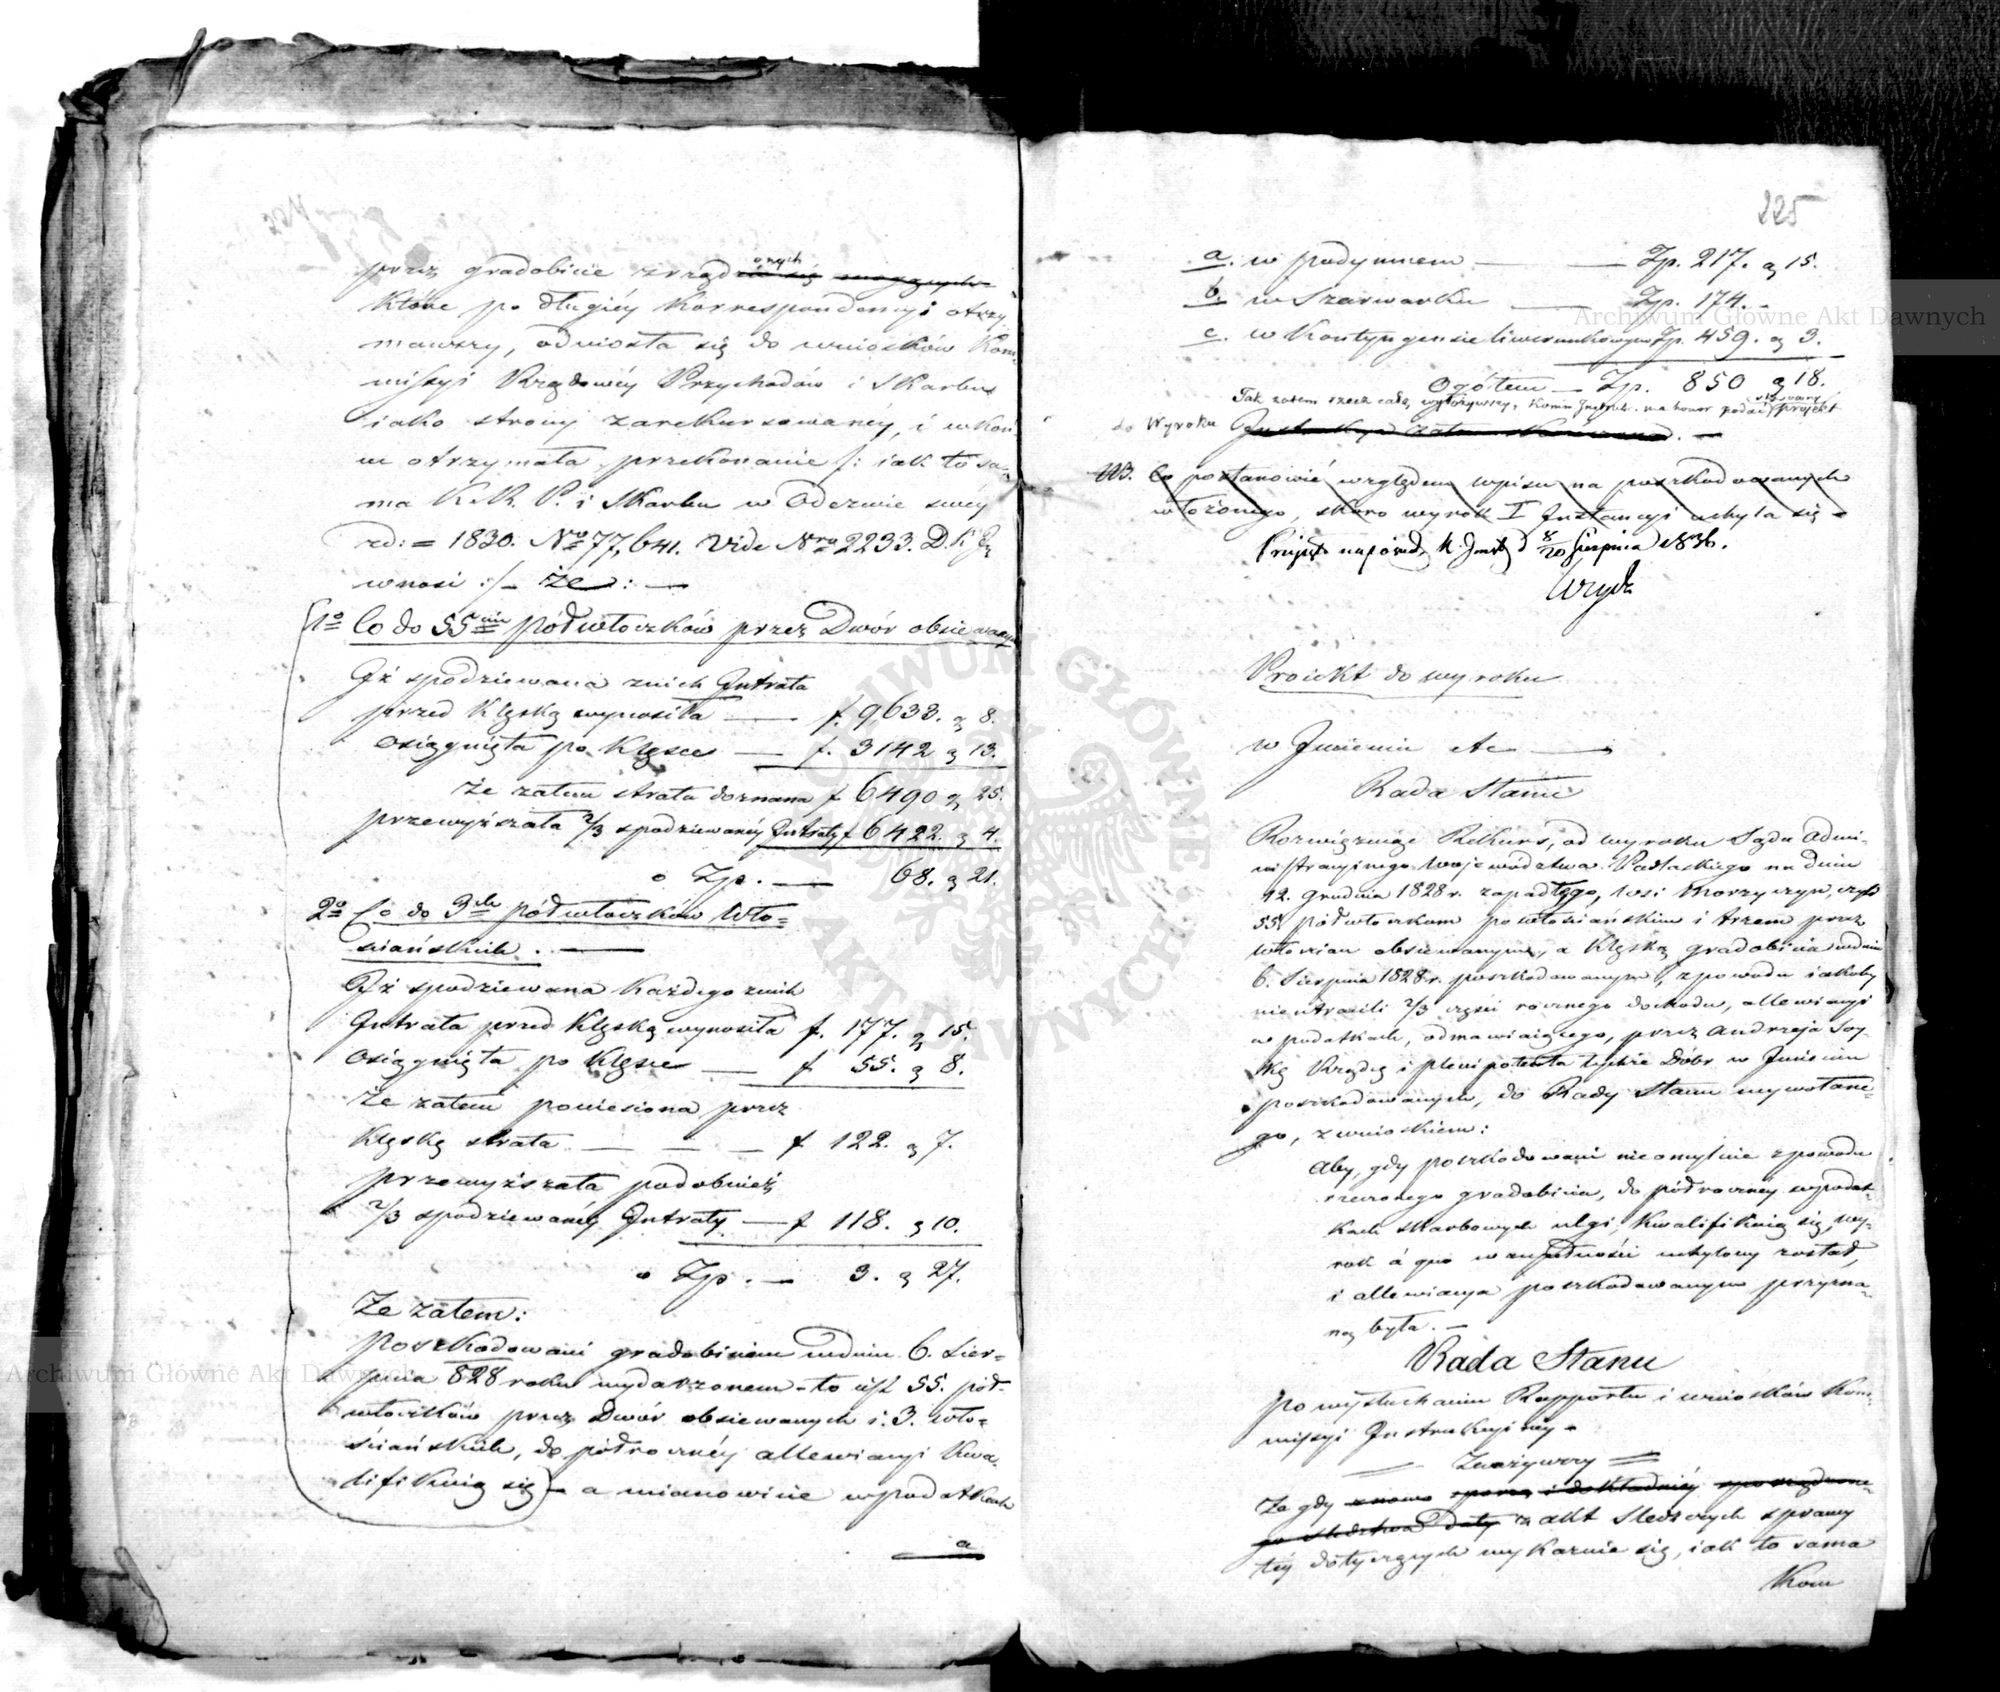 przez gradobicie zrządzonych
które po długiéy korrespondencyi otrzy
mawszy, odniosła się do wniosków Kom-
missyi Rządowéy Przychodów i Skarbu
iako strony zarekursowanéy, i w koń-
cu otrzymała przekonanie /: iak to sa-
ma K. R. P. i Skarbu w Odezwie swéy
rd: = 1830. No 77,641. vide Nro 2233. D. K. J.
wnosi :/ – że: —
1o Co do 55ciu półwłoczków przez Dwór obsiewanych
Iż spodziewana z nich Intrata
przed klęską wynosiła — f. 9,633. g 8.
osiągnięta po klęsce — f. 3142 g 13.
że zatem strata doznana f 6490 g 25.
przewyższała 2/3 spodziewanéy Intraty f 6422. g 4.
o Zp. — 68. g 21.
2o Co do 3ch półwłoczków Wło-
ściańskich. —
Iż spodziewana każdego z nich
Intrata przed klęską wynosiła f. 177. g 15.
osiągnięta po klęsce — f 55. g 8.
że zatem poniesiona przez
klęskę strata — — — f 122. g 7.
przewyższała podobnież
2/3 spodziewanéy Intraty — f 118. g 10.
o Zp. — 3. g 27.
Że zatem:
poszkodowani gradobiciem w dniu 6. Sier-
pnia 828 roku wydarzonem – to iest 55. pół-
włoczków przez Dwór obsiewanych i 3. wło-
ściańskich, do półrocznéy allewiacyi kwa-
lifikuią się – a mianowicie w podatkach
a
225
a. w podymnem — — Zp. 217. g 15.
b. w Szarwarku — Zp. 174. –
c. w Kontyngensie liwerunkowym Zp. 459. g 3.
Ogółem — Zp. 850 g 18.
Tak zatem rzecz całą wyłożywszy, Komm. Instruk. ma honor podać stosowny projekt
do Wyroku
NB. Co postanowić względem wpisu na poszkodowanych
włożonego, skoro wyrok I Instancyi uchyla się –
Przyięto na posiedz. K. Instr. d 8/20 Sierpnia 1836.
Proiekt do wyroku
w Imieniu etc —
Rada Stanu
Rozwiązuiąc Rekurs, od wyroku Sądu Admi-
nistracyinego Województwa Podlaskiego na dniu
12. Grudnia 1828 r. zapadłego, wsi Korzyczyn, czyli
55 półwłoczkom powłościańskim i trzem przez
włościan obsiewanym, a klęską gradobicia w dniu
6. Sierpnia 1828 r. poszkodowanym, z powodu iakoby
nie utracili 2/3 części rocznego dochodu, allewiacyi
w podatkach, odmawiaiącego, przez Andrzeja Soy-
kę Rządcę i plenipotenta tychże Dóbr w Imieniu
poszkodowanych, do Rady Stanu wywołane-
go, z wnioskiem:
Aby, gdy poszkodowani nieomylnie z powodu
rzeczonego gradobicia, do półroczney w podat-
kach skarbowych ulgi, kwalifikuią się, wy-
rok á quo w zupełności uchylony został,
i allewiacya poszkodowanym przyzna-
ną była. –
Rada Stanu
po wysłuchaniu Rapportu i wniosków Kom-
missyi Instrukcyiney –
Zważywszy
Że gdy z akt śledczych sprawy
téy dotyczących wykazuie się, iak to sama
Kom